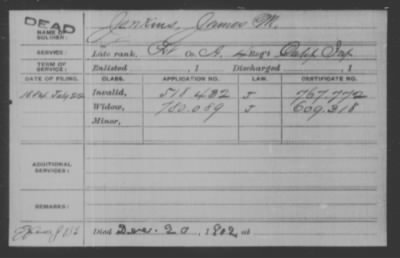 DEAD
NAME OF SOLDIER: Jenkins, James M.
SERVICE: Late rank, Co. G, 4 Reg't Inf
TERM OF SERVICE: Enlisted , 1 Discharged , 1
DATE OF FILING. CLASS. APPLICATION NO. LAW. CERTIFICATE NO.
1884 July 22 Invalid, 518.432 J 767.772
Widow, 780.059 J 609.318
Minor,
ADDITIONAL SERVICES:
REMARKS:
Died Dec. 20, 1902, at